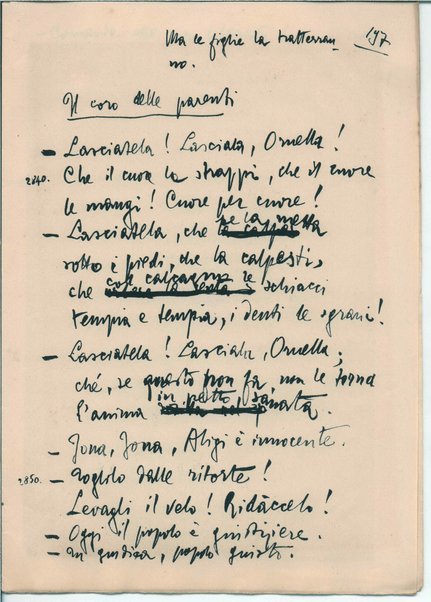 Ma le figlie la tratterran- 197
no.
Il coro delle parenti
– Lasciatela! Lasciala, Ornella!
2840. Che il cuore la strappi, che il cuore
le mangi! Cuore per cuore!
– Lasciatela, che se la metta
sotto i piedi, che la calpesti,
che col calcagno le schiacci
tempia e tempia, i denti le sgrani!
– Lasciatela! Lasciala, Ornella;
ché, se questo non fa, non le torna
l'anima in petto sanata.
– Iona, Iona, Aligi è innocente.
2850. – Toglilo dalle ritorte!
Levagli il velo! Ridàccelo!
– Oggi il popolo è giustiziere.
giudica, popolo giusto.